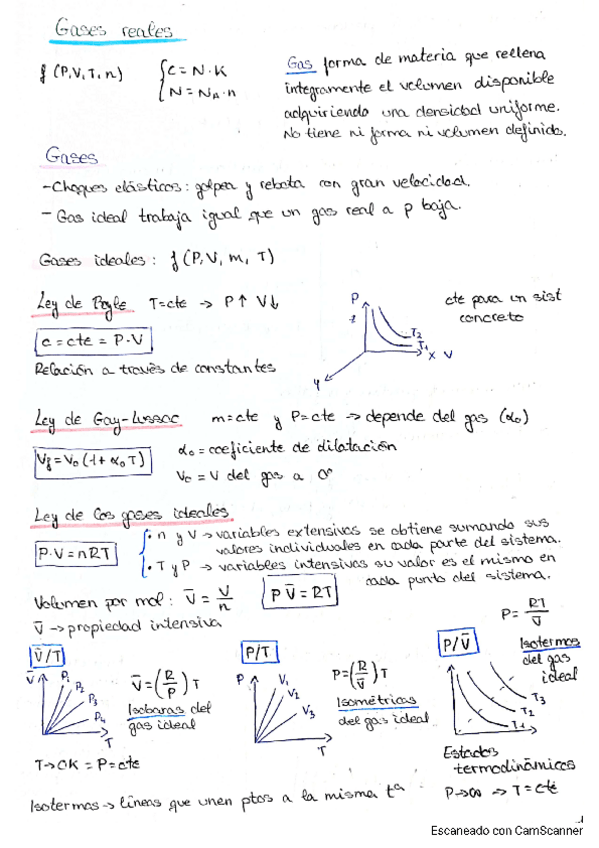 Gases reales
f (P,V,T,n) { C = N·K
N = NA·n
Gas forma de materia que rellena
integramente el volumen disponible
adquiriendo una densidad uniforme.
No tiene ni forma ni volumen definido.
Gases
- Choques elásticos: golpea y rebota con gran velocidad.
- Gas ideal trabaja igual que un gas real a p baja.
Gases ideales: f (P, V, m, T)
Ley de Boyle T=cte → P↑ V↓
c = cte = P·V
Relación a través de constantes
P
T2
T1
X V
Y
cte para un sist
concreto
Ley de Gay-Lussac m=cte y P=cte → depende del gas (α0)
Vf = V0 (1+ α0 T)
α0 = coeficiente de dilatación
V0 = V del gas a 0º
Ley de los gases ideales
P·V = nRT
• n y V → variables extensivas se obtiene sumando sus
valores individuales en cada parte del sistema.
• T y P → variables intensivas su valor es el mismo en
cada punto del sistema.
Volumen por mol: V̄ = V/n P V̄ = RT
V̄ → propiedad intensiva
P = RT/V̄
V̄/T
V̄
P1
P2
P3
P4
T
V̄ = (R/P) T
Isobaras del
gas ideal
T → 0K = P=cte
P/T
P
V1
V2
V3
T
P = (R/V̄) T
Isométricas
del gas ideal
P/V̄
Isotermas
del gas
ideal
T3
T2
T1
Estados
termodinámicos
P→∞ → T = cte
Isotermas → líneas que unen ptos a la misma tª
Escaneado con CamScanner